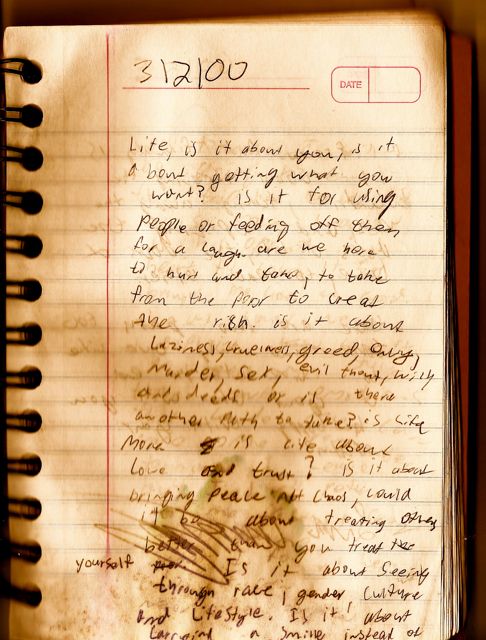 3/2/00
DATE
Life, is it about you, is it
about getting what you
want? is it for using
people or feeding off them
for a laugh. are we here
to hurt and take, to take
from the poor to
the rich. is it about
Laziness, greed, Envy,
Murder, Sex, evil
and deeds or is there
another Path to take? is Life
More is life about
Love and trust? is it about
bringing peace not Chaos, could
it be about treating others
better than you treat
yourself Is it about Seeing
through race, gender, Culture
and Lifestyle. Is it about
a smile instead of